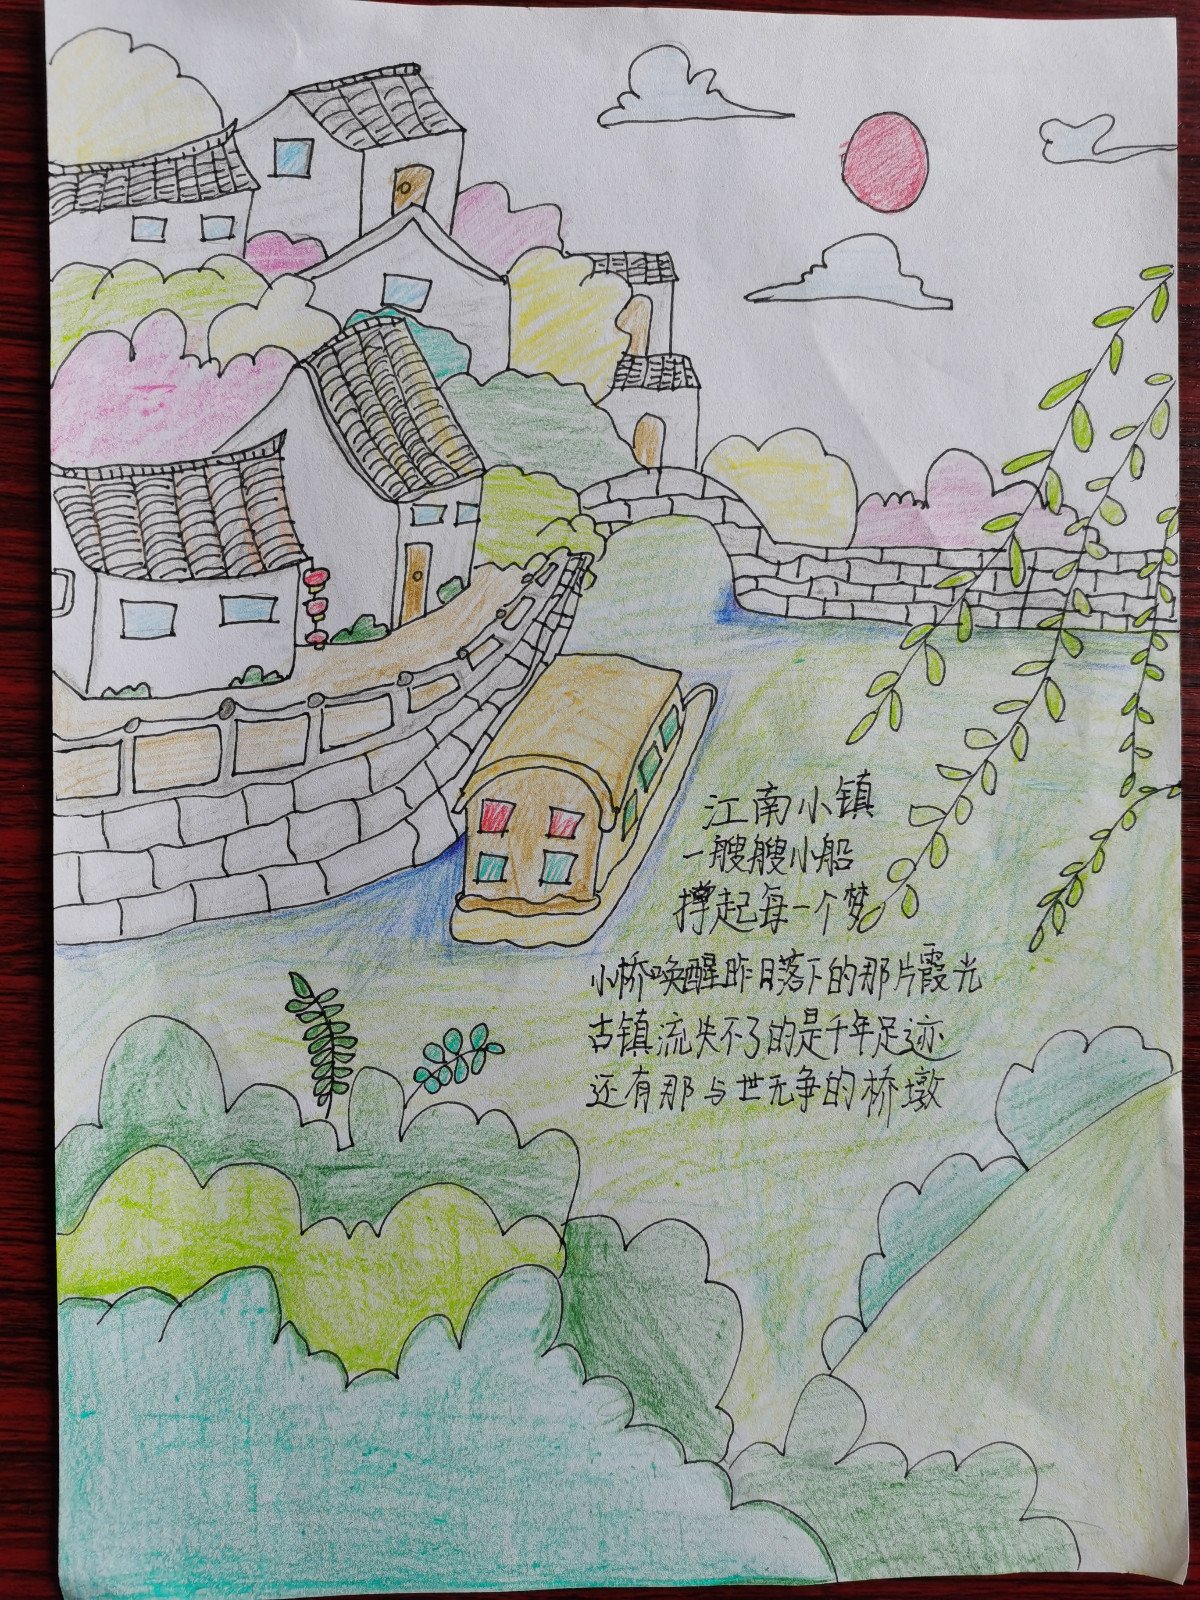 江南小镇
一艘艘小船
撑起每一个梦
小桥唤醒昨日落下的那片霞光
古镇流失不了的是千年足迹
还有那与世无争的桥墩